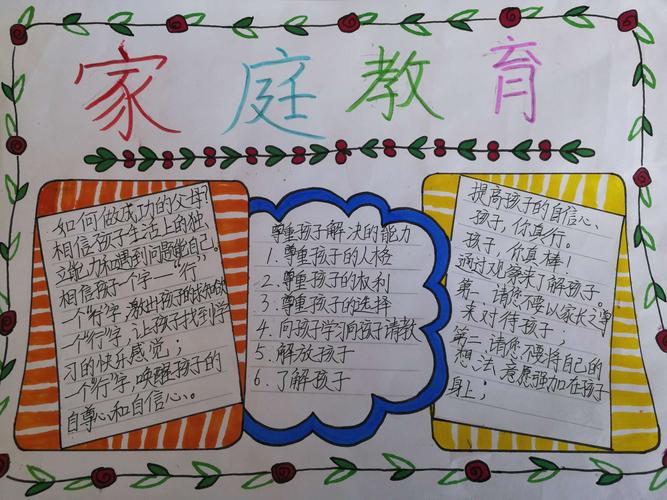 家庭教育
如何做成功的父母?
相信孩子生活上的独
立能力和遇到问题能自己。
相信孩子一个字一“行”
一个“行”字,激出孩子的求知欲
一个“行”字,让孩子找到学
习的快乐感觉;
一个“行”字,唤醒孩子的
自尊心和自信心、。
尊重孩子解决的能力
1.尊重孩子的人格
2.尊重孩子的权利
3.尊重孩子的选择
4.向孩子学习向孩子请教
5.解放孩子
6.了解孩子
提高孩子的自信心、
孩子,你真行。
孩子,你真棒!
通过观察来了解孩子。
第一、请您不要以家长之尊
来对待孩子;
第二请您不要将自己的
想法、意愿强加在孩子
身上;